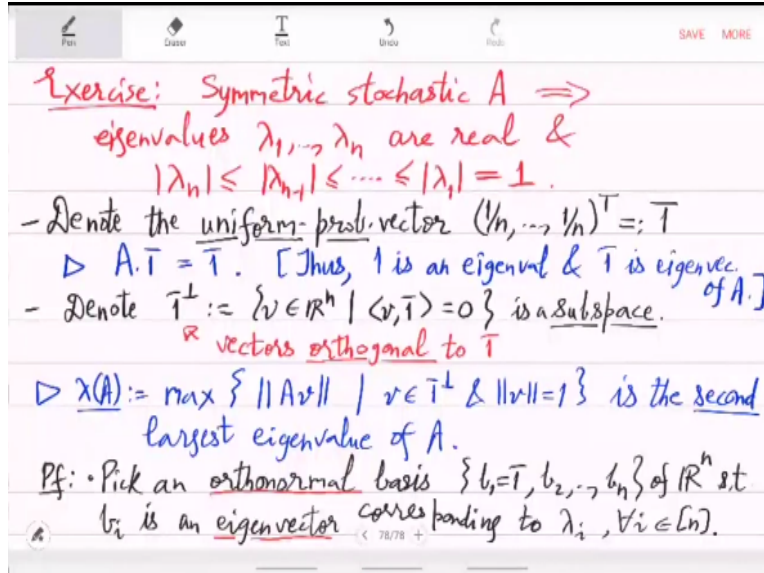 Pen Eraser Text Undo Redo SAVE MORE
Exercise: Symmetric stochastic A ⟹
eigenvalues λ₁,..,λₙ are real &
|λₙ| ≤ |λₙ₋₁| ≤ ···· ≤ |λ₁| = 1.
- Denote the uniform-prob. vector (1/n, ..., 1/n)ᵀ =: 1̄
▷ A.1̄ = 1̄. [Thus, 1 is an eigenval & 1̄ is eigenvec. of A.]
- Denote 1̄^⊥ := {v ∈ ℝⁿ | ⟨v, 1̄⟩ = 0} is a subspace.
vectors orthogonal to 1̄
▷ λ(A) := max { ||Av|| | v ∈ 1̄^⊥ & ||v|| = 1 } is the second
largest eigenvalue of A.
Pf: • Pick an orthonormal basis {b₁=1̄, b₂, .., bₙ} of ℝⁿ s.t.
bᵢ is an eigenvector corresponding to λᵢ, ∀i ∈ [n].
< 78/78 +